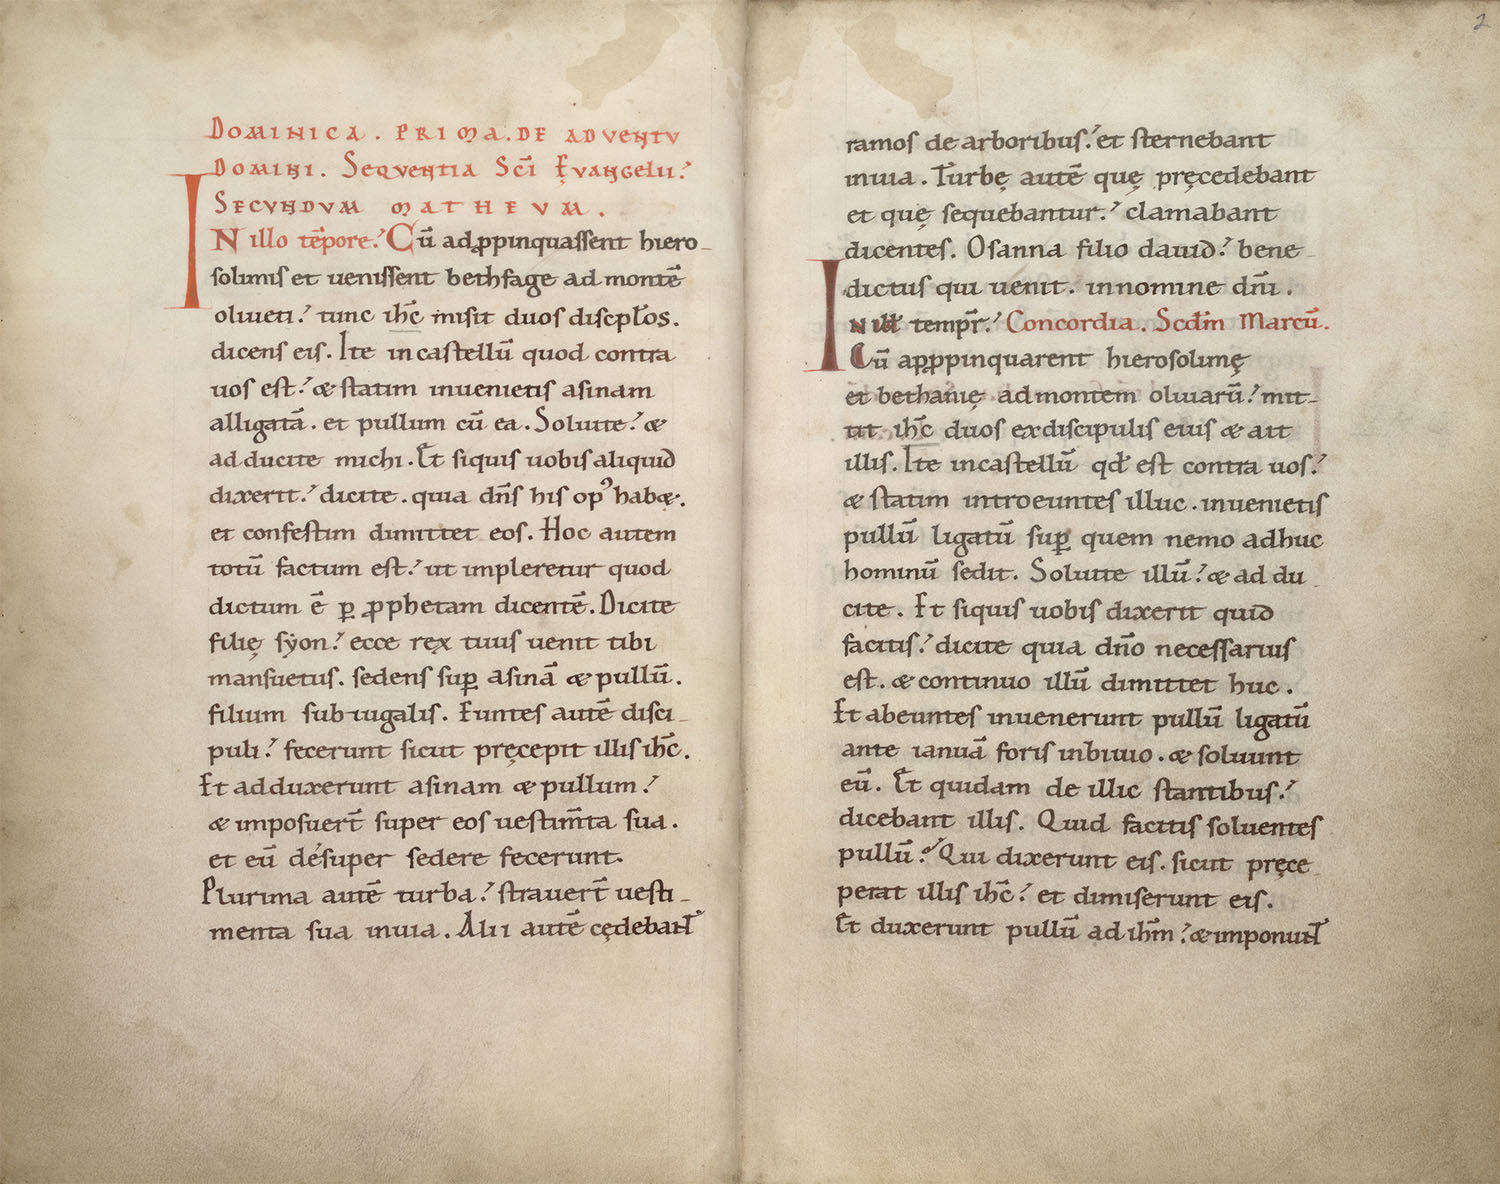 DOMINICA . PRIMA . DE ADVENTV
DOMINI . SEQVENTIA SCĪ EVANGELII.
SECVNDVM MATHEVM .
IN illo tēpore. Cū adꝓpinquaſſent hiero-
ſolimiſ et ueniſſent bethfage ad montē
oliueti. tunc ihc̄ miſit duoſ diſcpłoſ.
dicenſ eiſ. Ite incaſtellū quod contra
uoſ eſt. & ſtatim inuenietiſ aſinam
alligatā. et pullum cū ea. Soluite. &
adducite michi. Et ſiquiſ uobiſ aliquid
dixerit. dicite. quia dn̄ſ hiſ opꝰ hab&.
et confeſtim dimittet eoſ. Hoc autem
totū factum eſt. ut impleretur quod
dictum ē ꝑ ꝓphetam dicentē. Dicite
filię ſẏon. ecce rex tuuſ uenit tibi
manſuetuſ. ſedenſ ſuꝑ aſinā & pullū.
filium ſubiugaliſ. Eunteſ autē diſci-
puli. fecerunt ſicut pręcepit illiſ ihc̄.
Et adduxerunt aſinam & pullum.
& impoſuert̄ ſuper eoſ ueſtim̄ta ſua.
et eū déſuper ſedere fecerunt.
Plurima autē turba. ſtrauert̄ ueſti-
menta ſua inuia. Alii autē cędebant̄
2
ramoſ de arboribuſ. et ſternebant
inuia. Turbę autē quę pręcedebant
et quę ſequebantur. clamabant
dicenteſ. Oſanna filio dauid. bene-
dictuſ qui uenit. innomine dn̄i.
IN illo tempr̄. CONCORDIA. Scd̄m Marcū.
Cū apꝓpinquarent hieroſolimę
et bethanię ad montem oliuarū. mit-
tit ihc̄ duoſ exdiſcipuliſ eiuſ & ait
illiſ. Ite incaſtellū qd̄ eſt contra uoſ.
& ſtatim introeunteſ illuc. inuenietiſ
pullū ligatū ſuꝑ quem nemo adhuc
hominū ſedit. Soluite illū. & addu-
cite. Et ſiquiſ uobiſ dixerit quid
facitiſ. dicite quia dn̄o neceſſariuſ
eſt. & continuo illū dimittet huc.
Et abeunteſ inuenerunt pullū ligatū
ante ianuā foriſ inbiuio. & ſoluunt
eū. Et quidam de illic ſtantibuſ.
dicebant illiſ. Quid facitiſ ſoluenteſ
pullū. Qui dixerunt eiſ. ſicut pręce-
perat illiſ ihc̄. et dimiſerunt eiſ.
Et duxerunt pullū ad ihm̄. & imponunt̄